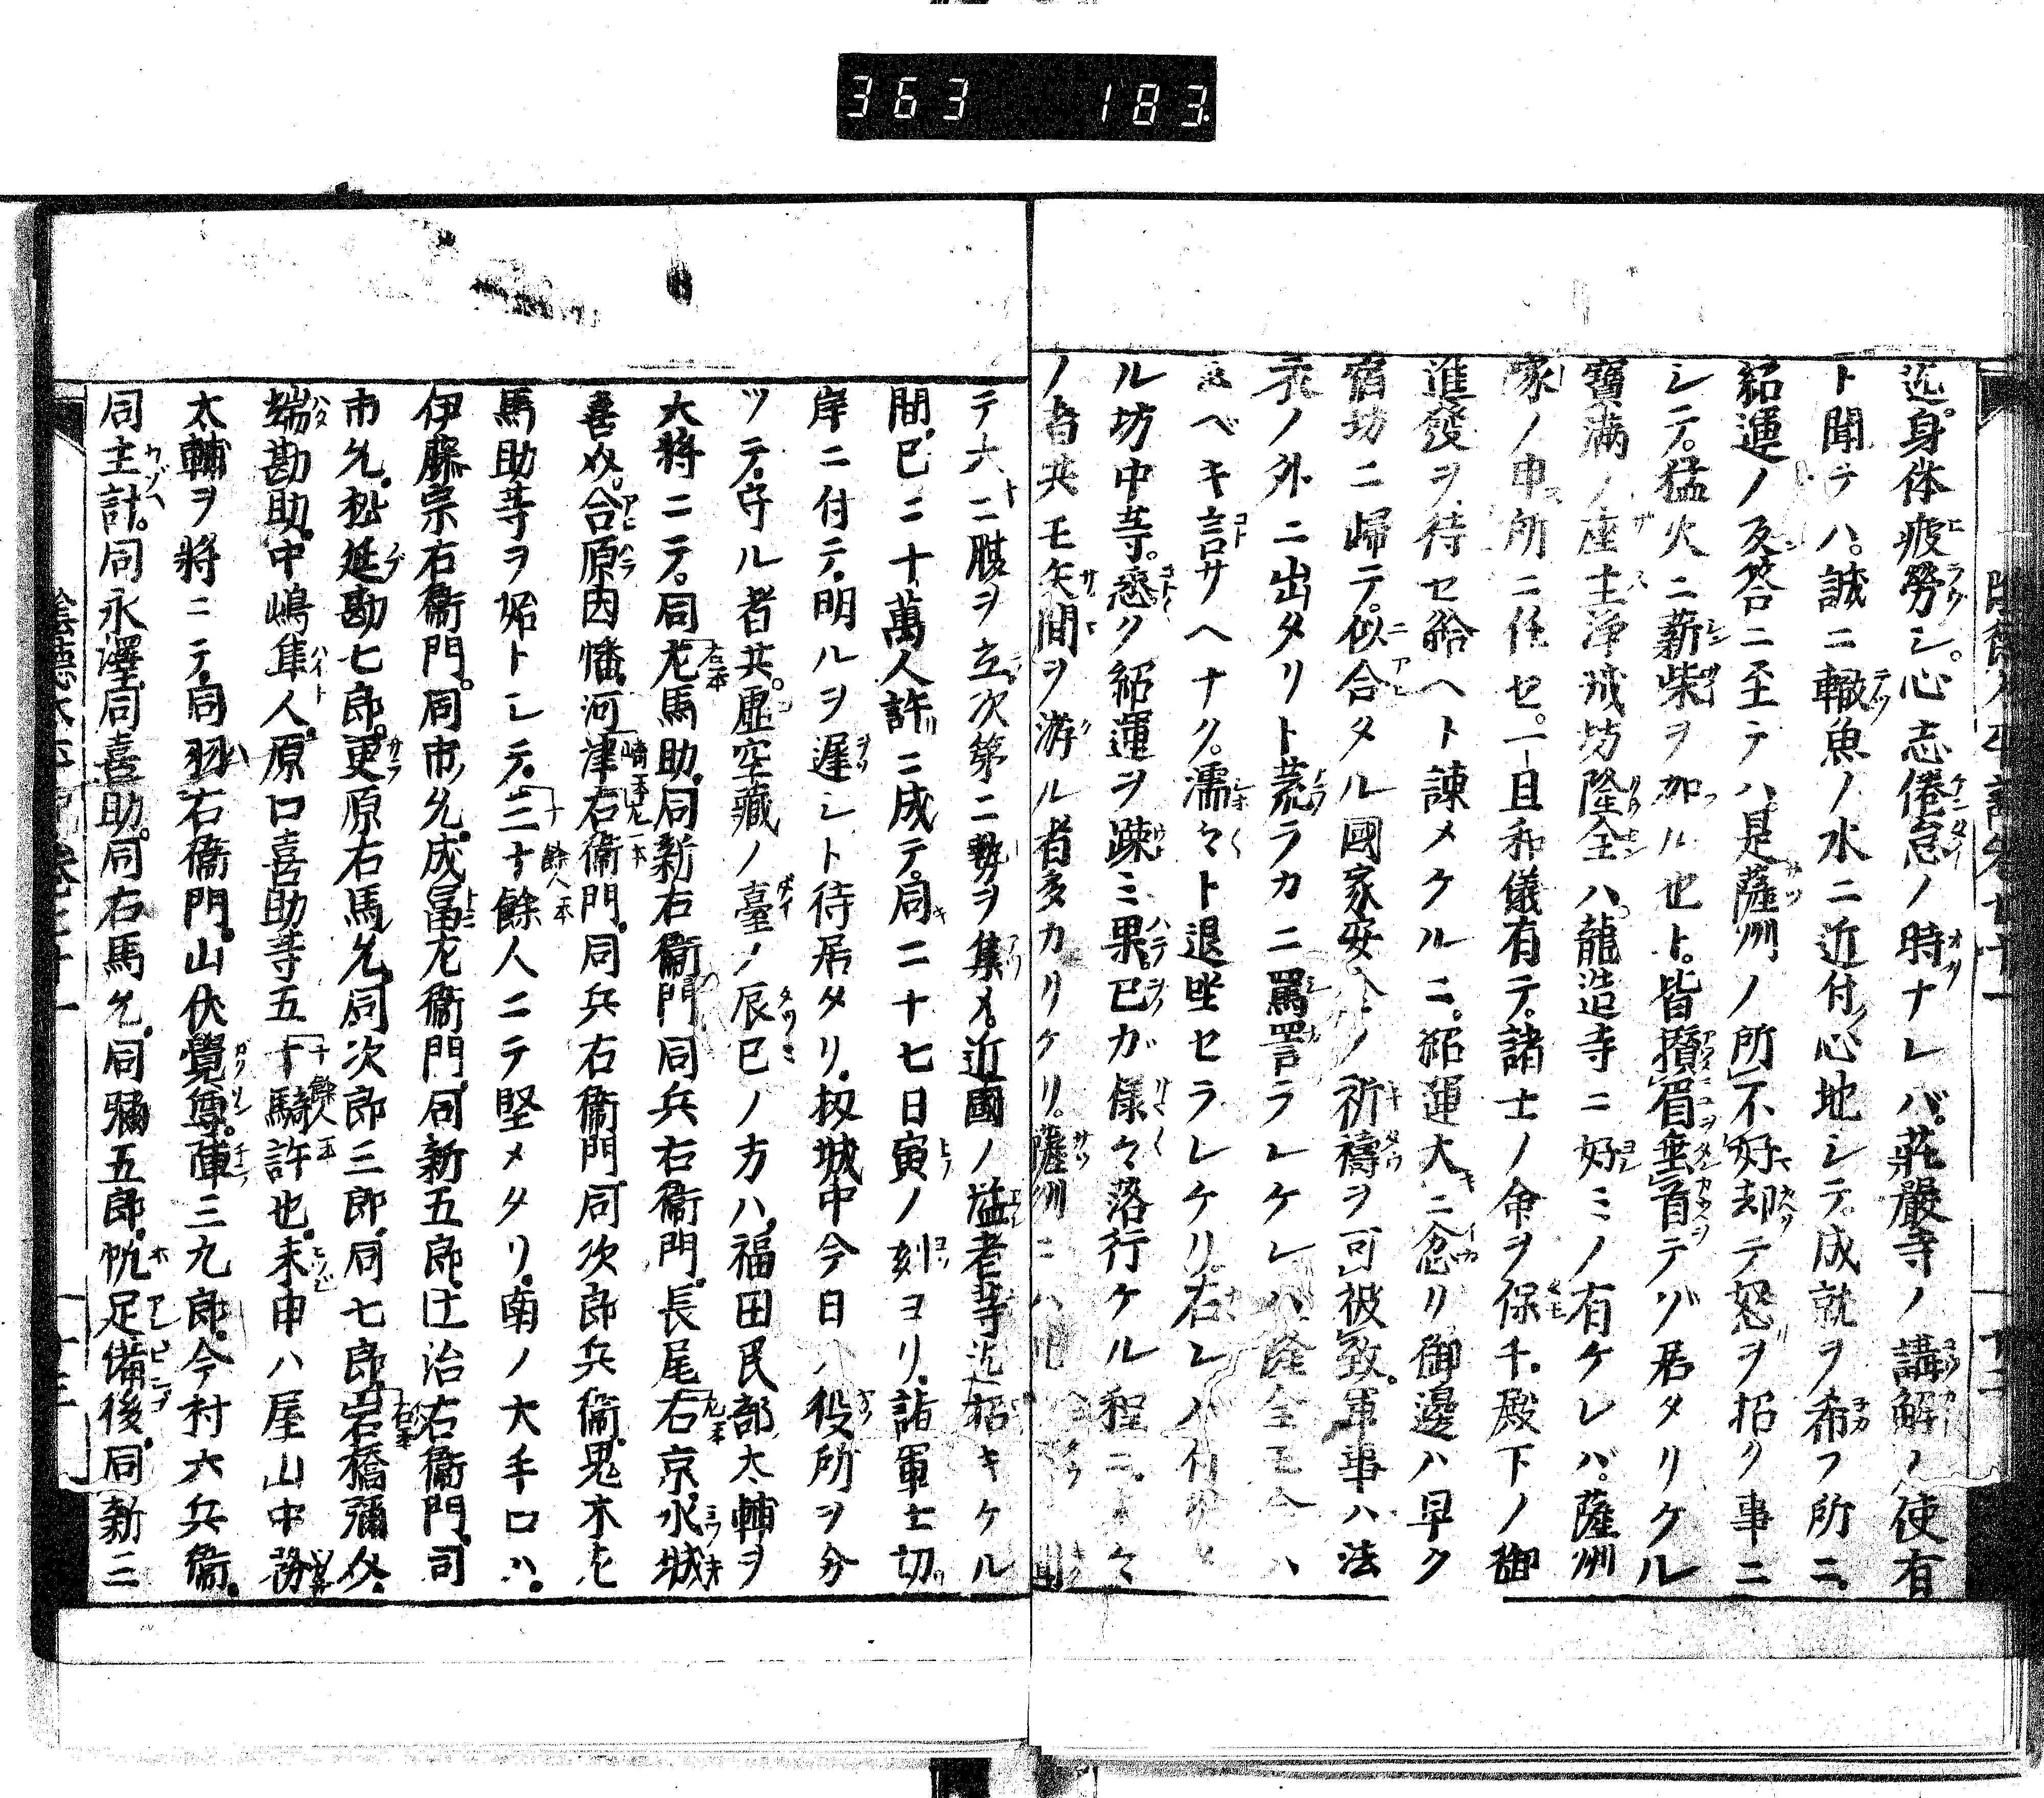 363 183
迄。身体疲勞シ。心志倦怠ノ時ナレバ。莊嚴寺ノ講解ノ使有
ト聞テハ。誠ニ轍魚ノ水ニ近付心地シテ。成就ヲ希フ所ニ。
紹運ノ返答ニ至テハ。是薩州ノ所不好却テ怒ヲ招ク事ニ
シテ。猛火ニ薪柴ヲ加ル也ト。皆攅眉垂首テゾ居タリケル
寳滿ノ座主淨戒坊隆全ハ。龍造寺ニ好ミノ有ケレバ。薩州
家ノ申所ニ任セ。一旦和儀有テ。諸士ノ命ヲ保チ。殿下ノ御
進發ヲ待セ給ヘト諫メケルニ。紹運大ニ忿リ御邊ハ早ク
宿坊ニ歸テ。似合タル國家安全ノ祈禱ヲ可被致。軍事ハ法
衣ノ外ニ出タリト荒ラカニ罵詈ラレケレハ。隆全モ今ハ
返ベキ言サヘナク。濡々ト退出セラレケリ。右レハ
ル坊中等。悉ク紹運ヲ疎ミ果。已ガ様々落行ケル程ニ。下々
ノ者共モ矢間ヲ游ル者多カリケリ。薩州ニハ
テ大ニ腹ヲ立次第ニ勢ヲ集メ。近國ノ溢者等迄招キケル
間。已ニ十萬人許ニ成テ。同二十七日寅ノ刻ヨリ。諸軍士切
岸ニ付テ。明ルヲ遲シト待居タリ。扨城中今日ハ役所ヲ分
ツテ。守ル者共。虚空藏ノ臺ノ辰巳ノ方ハ。福田民部太輔ヲ
大將ニテ。同左馬助。同新右衞門同兵右衞門。長尾右京。水城
喜攵。合原因幡。河津右衞門。同兵右衞門。同次郎兵衞。鬼木
馬助等ヲ始トシテ。三十餘人ニテ堅メタリ。南ノ大手口ハ。
伊藤宗右衞門。同市允。成冨左衞門。同新五郎。辻治右衞門。同
市允。松延勘七郎。更原右馬允。同次郎三郎。同七郎。岩橋彌攵。
端勘助。中嶋隼人。原口喜助等五十騎許也。未申ハ屋山中務
太輔ヲ將ニテ。同羽右衞門。山伏覺尊。陣三九郎。今村六兵衞。
同主計。同永澤。同喜助。同右馬允。同彌五郎。帆足備後。同新三